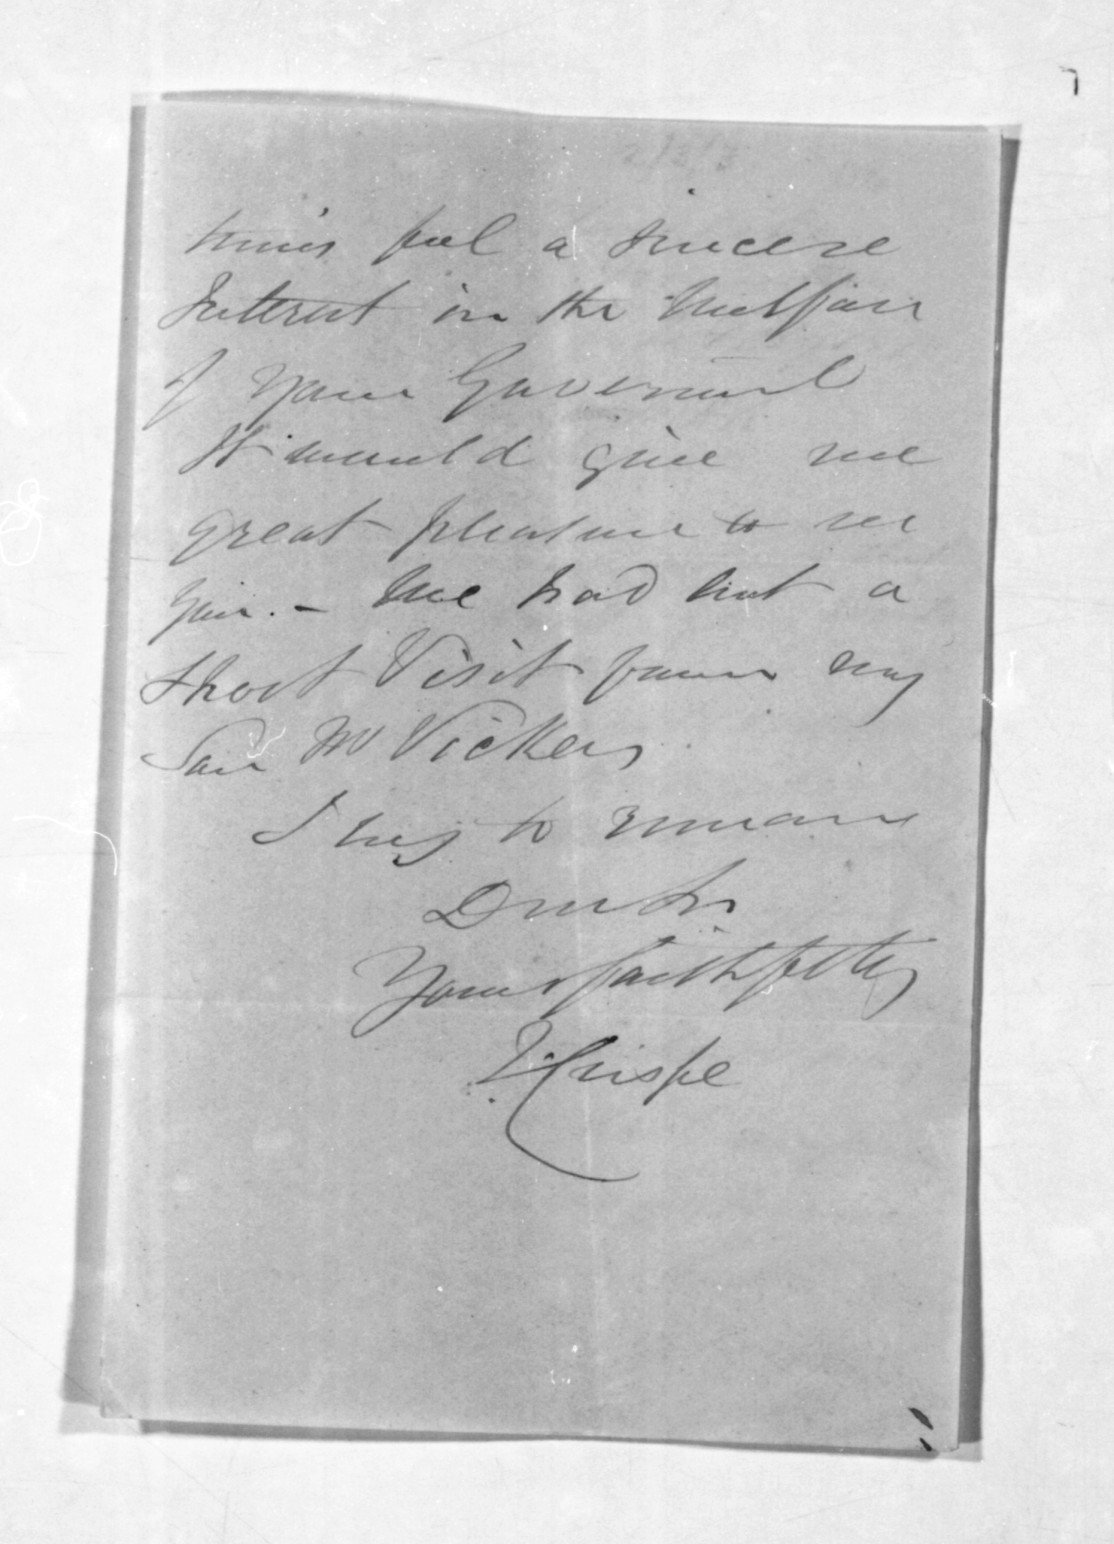 feel a sincere
Interest in the Wellfair
of your Goverment
It would give me
great pleasure to see
you. - We had but a
short Visit from my
Son Mr Vickers
I beg to remain
Dear Sir
Yours faithfully
Crispe